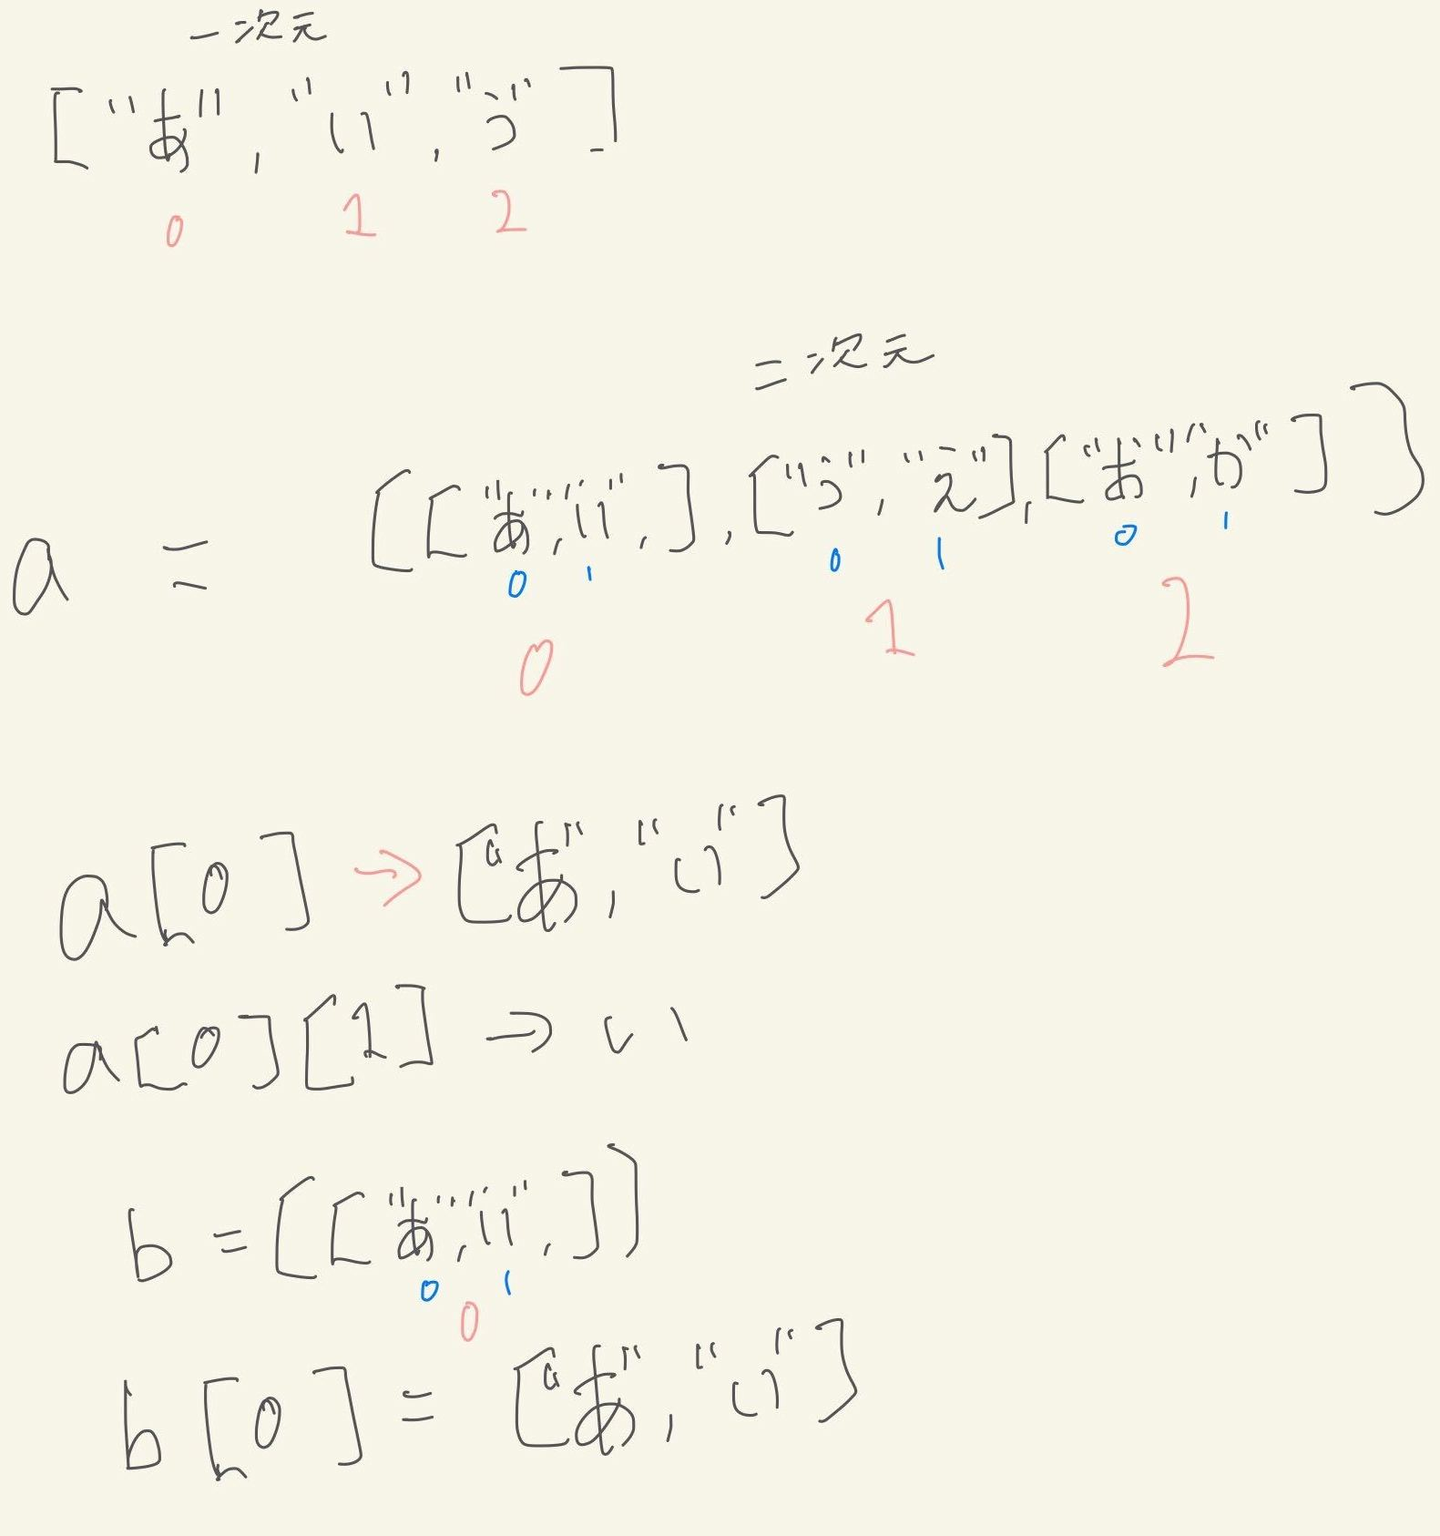 一次元
["あ", "い", "う"]
0 1 2
二次元
a = [["あ","い",],["う","え"],["お","か"]]
0 1 0 1 0 1
0 1 2
a[0] → ["あ","い"]
a[0][1] → い
b = [["あ","い",]]
0 1
0
b[0] = ["あ","い"]